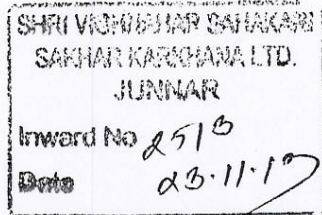 SHRI VIGHNAHAR SAHAKARI
SAKHAR KARKHANA LTD.
JUNNAR
Inward No 2513
Date 23.11.17